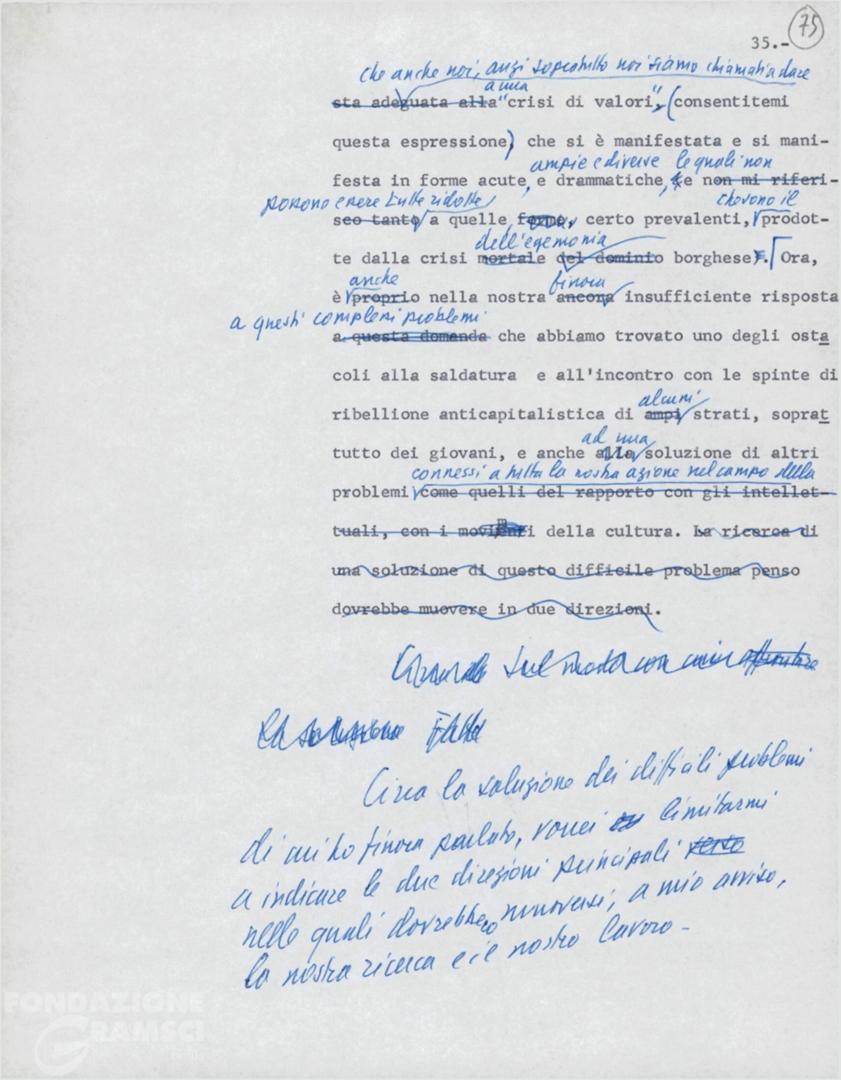 35.- 75
che anche noi, anzi soprattutto noi siamo chiamati a dare
a una
sta adeguata alla "crisi di valori", (consentitemi
questa espressione) che si è manifestata e si mani-
ampie e diverse le quali non
festa in forme acute, e drammatiche, e non mi riferi-
possono essere tutte ridotte
chovono il
sco tanto a quelle forme, certo prevalenti, prodot-
dell'egemonia
te dalla crisi mortale del dominio borghese. Ora,
anche finora
è proprio nella nostra ancora insufficiente risposta
a questi complessi problemi
a questa domanda che abbiamo trovato uno degli osta
coli alla saldatura e all'incontro con le spinte di
alcuni
ribellione anticapitalistica di ampi strati, soprat
ad una
tutto dei giovani, e anche alla soluzione di altri
connessi a tutta la nostra azione nel campo della
problemi come quelli del rapporto con gli intellet-
tuali, con i movimenti della cultura. La ricerca di
una soluzione di questo difficile problema penso
dovrebbe muovere in due direzioni.
sul modo con cui affrontare
la soluzione
Circa la soluzione dei difficili problemi
di cui ho finora parlato, vorrei limitarmi
a indicare le due direzioni principali verso
nelle quali dovrebbero muoversi, a mio avviso,
la nostra ricerca e il nostro lavoro -
FONDAZIONE
GRAMSCI